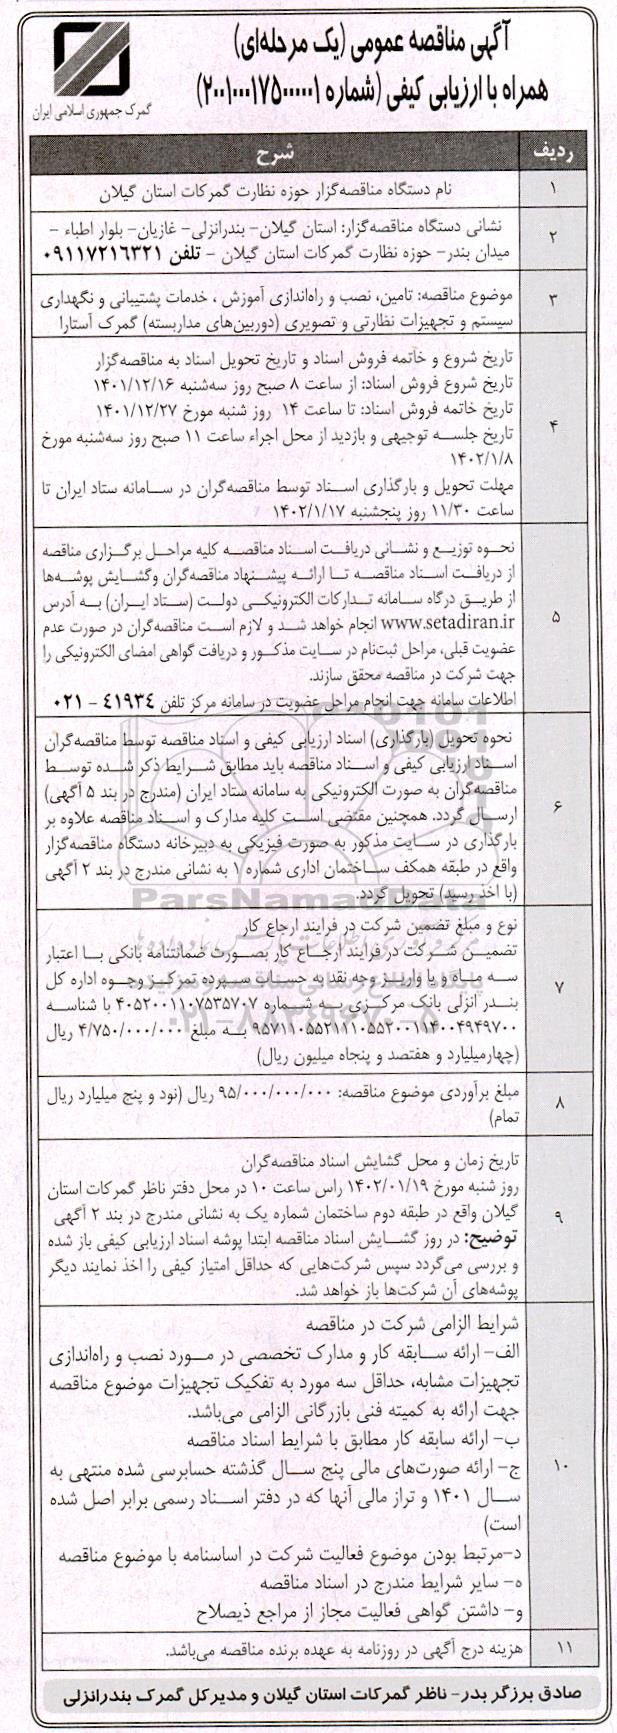 آگهی مناقصه عمومی (یک مرحله‌ای)
همراه با ارزیابی کیفی (شماره ۲۰۰۱۰۰۰۱۷۵۰۰۰۰۰۱)
گمرک جمهوری اسلامی ایران
ردیف
شرح
۱
نام دستگاه مناقصه‌گزار حوزه نظارت گمرکات استان گیلان
۲
نشانی دستگاه مناقصه‌گزار: استان گیلان- بندرانزلی- غازیان- بلوار اطباء -
میدان بندر- حوزه نظارت گمرکات استان گیلان - تلفن ۰۹۱۱۷۲۱۶۳۲۱
۳
موضوع مناقصه: تامین، نصب و راه‌اندازی آموزش ، خدمات پشتیبانی و نگهداری
سیستم و تجهیزات نظارتی و تصویری (دوربین‌های مداربسته) گمرک آستارا
۴
تاریخ شروع و خاتمه فروش اسناد و تاریخ تحویل اسناد به مناقصه‌گزار
تاریخ شروع فروش اسناد: از ساعت ۸ صبح روز سه‌شنبه ۱۴۰۱/۱۲/۱۶
تاریخ خاتمه فروش اسناد: تا ساعت ۱۴ روز شنبه مورخ ۱۴۰۱/۱۲/۲۷
تاریخ جلسه توجیهی و بازدید از محل اجراء ساعت ۱۱ صبح روز سه‌شنبه مورخ
۱۴۰۲/۱/۸
مهلت تحویل و بارگذاری اسناد توسط مناقصه‌گران در سامانه ستاد ایران تا
ساعت ۱۱/۳۰ روز پنجشنبه ۱۴۰۲/۱/۱۷
۵
نحوه توزیع و نشانی دریافت اسناد مناقصه کلیه مراحل برگزاری مناقصه
از دریافت اسناد مناقصه تا ارائه پیشنهاد مناقصه‌گران وگشایش پوشه‌ها
از طریق درگاه سامانه تدارکات الکترونیکی دولت (ستاد ایران) به آدرس
www.setadiran.ir انجام خواهد شد و لازم است مناقصه‌گران در صورت عدم
عضویت قبلی، مراحل ثبت‌نام در سایت مذکور و دریافت گواهی امضای الکترونیکی را
جهت شرکت در مناقصه محقق سازند.
اطلاعات سامانه جهت انجام مراحل عضویت در سامانه مرکز تلفن ۴۱۹۳۴ - ۰۲۱
۶
نحوه تحویل (بارگذاری) اسناد ارزیابی کیفی و اسناد مناقصه توسط مناقصه‌گران
اسناد ارزیابی کیفی و اسناد مناقصه باید مطابق شرایط ذکر شده توسط
مناقصه‌گران به صورت الکترونیکی به سامانه ستاد ایران (مندرج در بند ۵ آگهی)
ارسال گردد. همچنین مقتضی است کلیه مدارک و اسناد مناقصه علاوه بر
بارگذاری در سایت مذکور به صورت فیزیکی به دبیرخانه دستگاه مناقصه‌گزار
واقع در طبقه همکف ساختمان اداری شماره ۱ به نشانی مندرج در بند ۲ آگهی
(با اخذ رسید) تحویل گردد.
ParsNamadData
۷
نوع و مبلغ تضمین شرکت در فرایند ارجاع کار
تضمین شرکت در فرایند ارجاع کار بصورت ضمانتنامه بانکی با اعتبار
سه ماه و یا واریز وجه نقد به حساب سپرده تمرکز وجوه اداره کل
بندر انزلی بانک مرکزی به شماره ۴۰۵۲۰۰۱۱۰۷۵۳۵۷۰۷ با شناسه
به مبلغ ۴/۷۵۰/۰۰۰/۰۰۰ ریال
(چهارمیلیارد و هفتصد و پنجاه میلیون ریال)
۸
مبلغ برآوردی موضوع مناقصه: ۹۵/۰۰۰/۰۰۰/۰۰۰ ریال (نود و پنج میلیارد ریال
تمام)
۹
تاریخ زمان و محل گشایش اسناد مناقصه‌گران
روز شنبه مورخ ۱۴۰۲/۰۱/۱۹ راس ساعت ۱۰ در محل دفتر ناظر گمرکات استان
گیلان واقع در طبقه دوم ساختمان شماره یک به نشانی مندرج در بند ۲ آگهی
توضیح: در روز گشایش اسناد مناقصه ابتدا پوشه اسناد ارزیابی کیفی باز شده
و بررسی می‌گردد سپس شرکت‌هایی که حداقل امتیاز کیفی را اخذ نمایند دیگر
پوشه‌های آن شرکت‌ها باز خواهد شد.
۱۰
شرایط الزامی شرکت در مناقصه
الف- ارائه سابقه کار و مدارک تخصصی در مورد نصب و راه‌اندازی
تجهیزات مشابه، حداقل سه مورد به تفکیک تجهیزات موضوع مناقصه
جهت ارائه به کمیته فنی بازرگانی الزامی می‌باشد.
ب- ارائه سابقه کار مطابق با شرایط اسناد مناقصه
ج- ارائه صورت‌های مالی پنج سال گذشته حسابرسی شده منتهی به
سال ۱۴۰۱ و تراز مالی آنها که در دفتر اسناد رسمی برابر اصل شده
است)
د-مرتبط بودن موضوع فعالیت شرکت در اساسنامه با موضوع مناقصه
ه- سایر شرایط مندرج در اسناد مناقصه
و- داشتن گواهی فعالیت مجاز از مراجع ذیصلاح
۱۱
هزینه درج آگهی در روزنامه به عهده برنده مناقصه می‌باشد.
صادق برزگر بدر- ناظر گمرکات استان گیلان و مدیرکل گمرک بندرانزلی